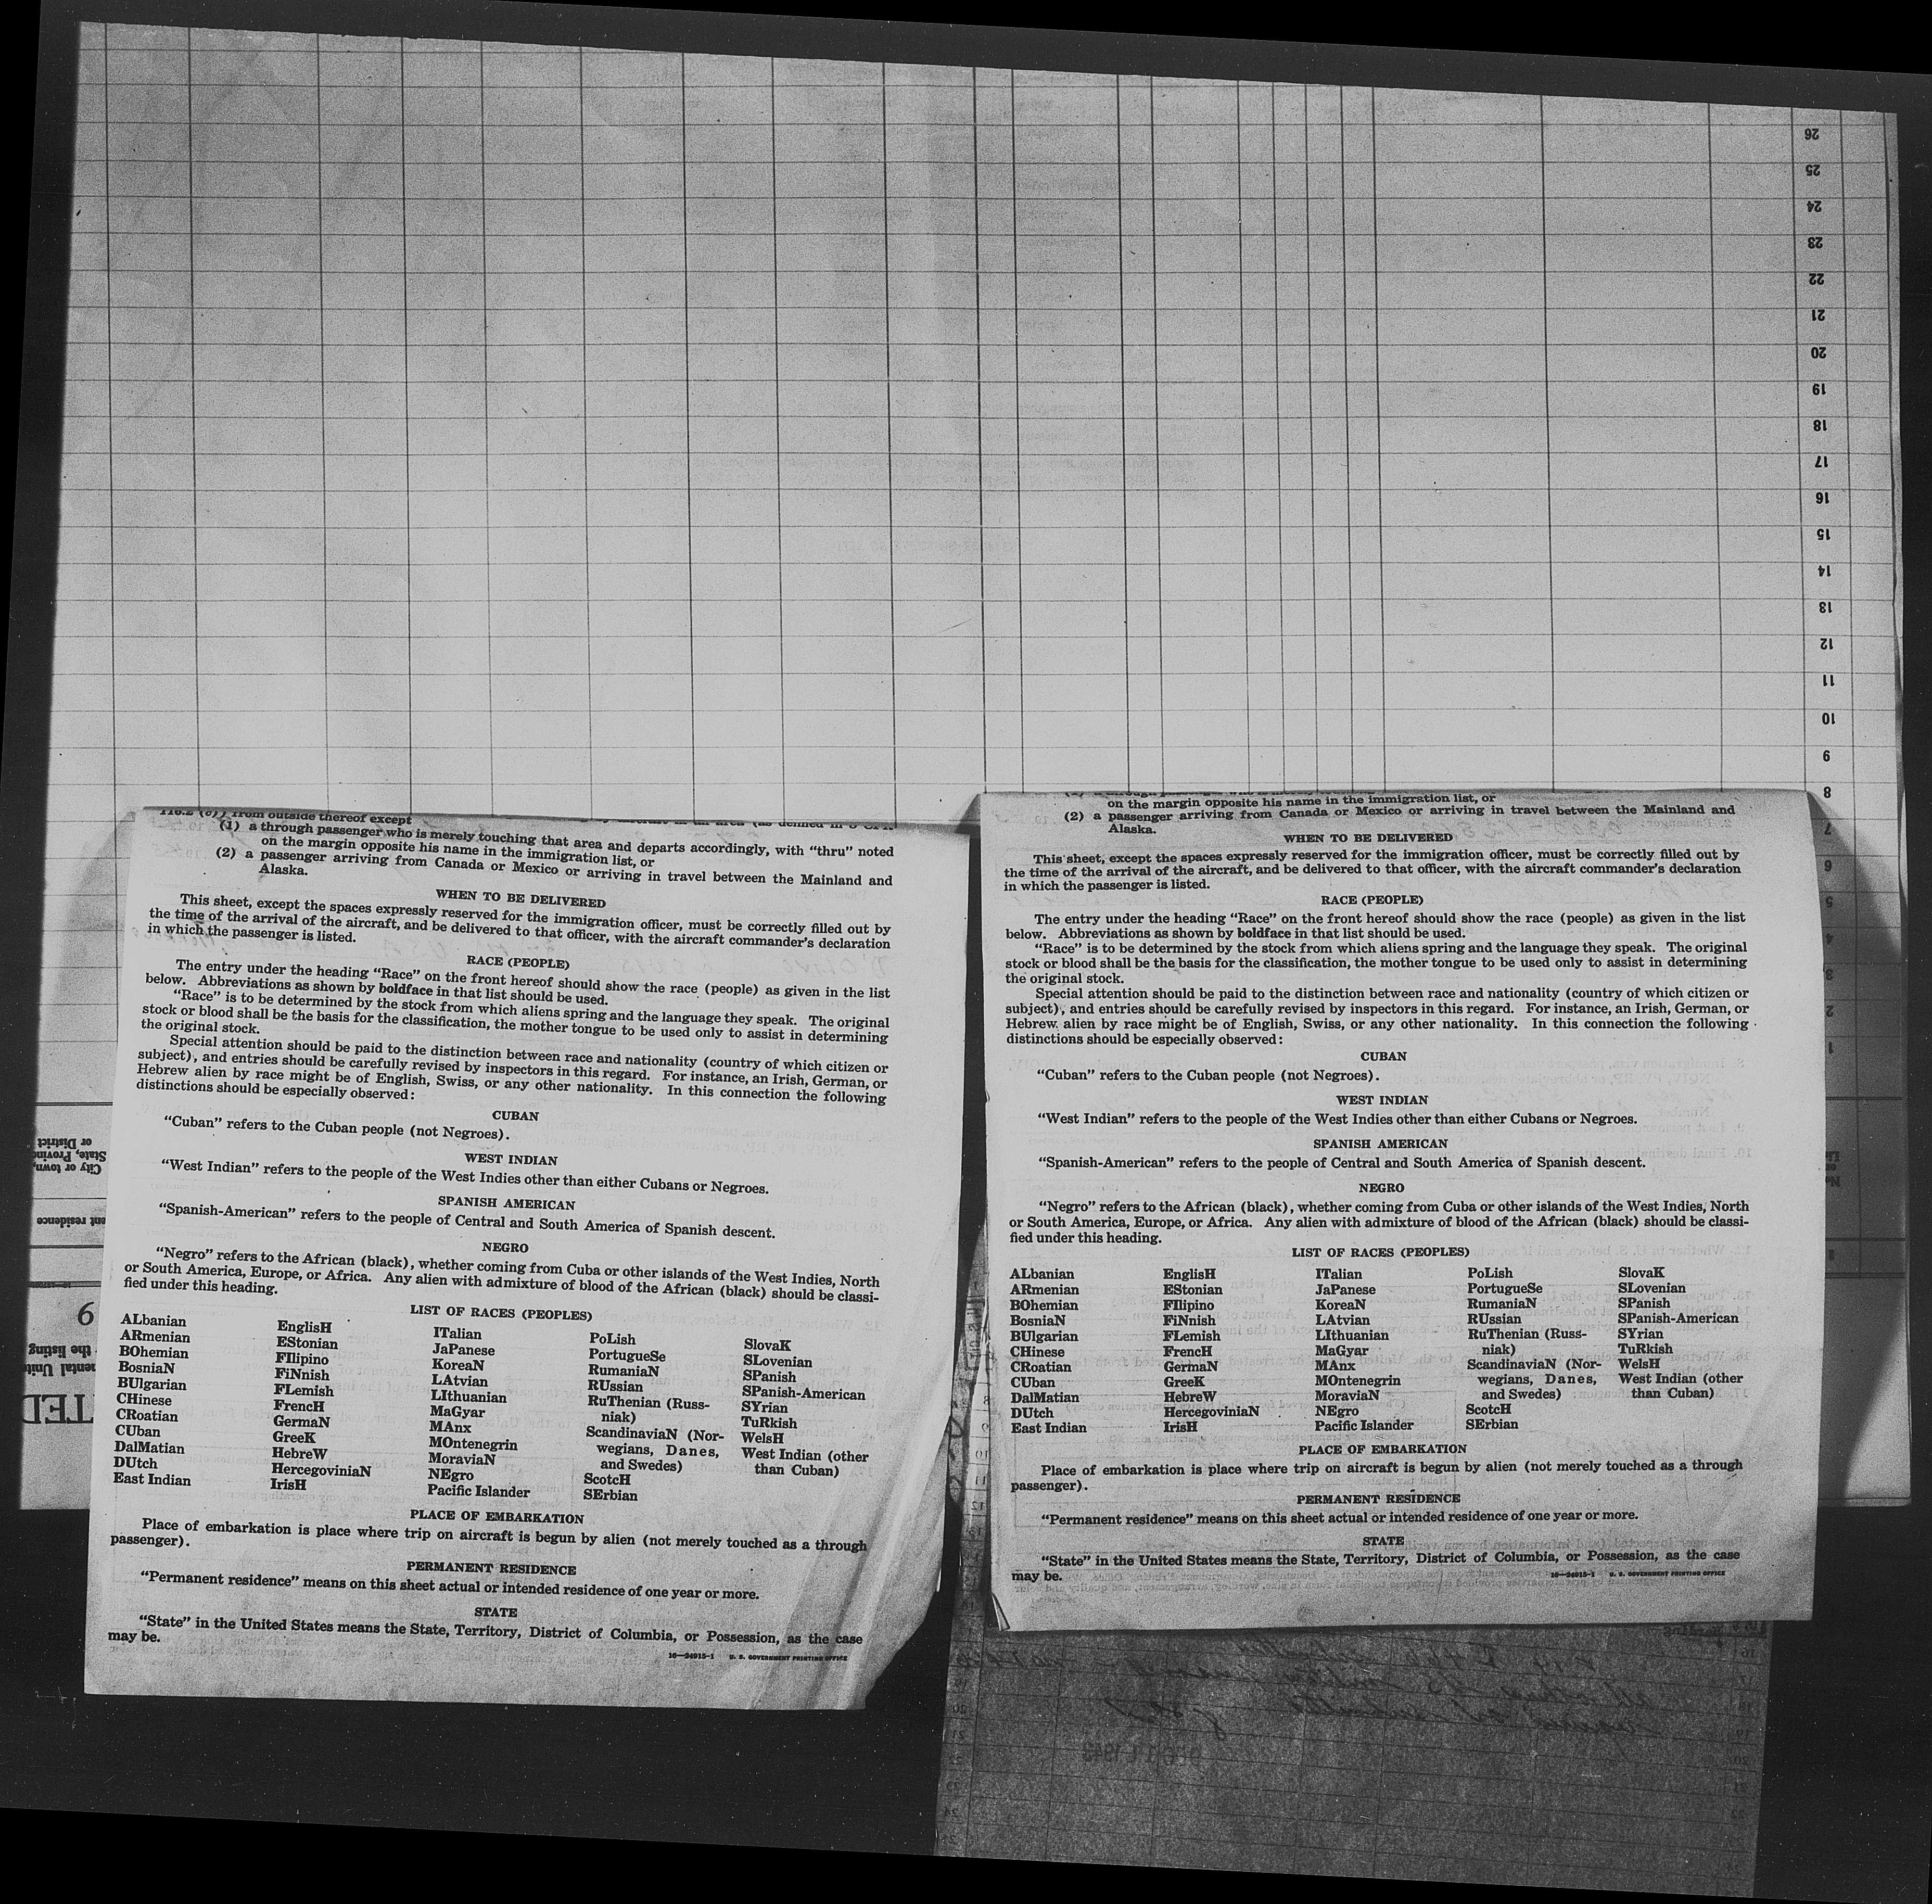 26
25
24
23
22
21
20
19
18
17
16
15
14
13
12
11
10
9
8
7
6
5
4
3
2
1
from outside thereof except
(1) a through passenger who is merely touching that area and departs accordingly, with "thru" noted
on the margin opposite his name in the immigration list, or
(2) a passenger arriving from Canada or Mexico or arriving in travel between the Mainland and
Alaska.
WHEN TO BE DELIVERED
This sheet, except the spaces expressly reserved for the immigration officer, must be correctly filled out by
the time of the arrival of the aircraft, and be delivered to that officer, with the aircraft commander's declaration
in which the passenger is listed.
RACE (PEOPLE)
The entry under the heading "Race" on the front hereof should show the race (people) as given in the list
below. Abbreviations as shown by boldface in that list should be used.
"Race" is to be determined by the stock from which aliens spring and the language they speak. The original
stock or blood shall be the basis for the classification, the mother tongue to be used only to assist in determining
the original stock.
Special attention should be paid to the distinction between race and nationality (country of which citizen or
subject), and entries should be carefully revised by inspectors in this regard. For instance, an Irish, German, or
Hebrew alien by race might be of English, Swiss, or any other nationality. In this connection the following
distinctions should be especially observed:
CUBAN
"Cuban" refers to the Cuban people (not Negroes).
WEST INDIAN
"West Indian" refers to the people of the West Indies other than either Cubans or Negroes.
SPANISH AMERICAN
"Spanish-American" refers to the people of Central and South America of Spanish descent.
NEGRO
"Negro" refers to the African (black), whether coming from Cuba or other islands of the West Indies, North
or South America, Europe, or Africa. Any alien with admixture of blood of the African (black) should be classi-
fied under this heading.
LIST OF RACES (PEOPLES)
ALbanian
ARmenian
BOhemian
BosniaN
BUlgarian
CHinese
CRoatian
CUban
DalMatian
DUtch
East Indian
EnglisH
EStonian
FIlipino
FiNnish
FLemish
FrencH
GermaN
GreeK
HebreW
HercegoviniaN
IrisH
ITalian
JaPanese
KoreaN
LAtvian
LIthuanian
MaGyar
MAnx
MOntenegrin
MoraviaN
NEgro
Pacific Islander
PoLish
PortugueSe
RumaniaN
RUssian
RuThenian (Russ-
niak)
ScandinaviaN (Nor-
wegians, Danes,
and Swedes)
ScotcH
SErbian
SlovaK
SLovenian
SPanish
SPanish-American
SYrian
TuRkish
WelsH
West Indian (other
than Cuban)
PLACE OF EMBARKATION
Place of embarkation is place where trip on aircraft is begun by alien (not merely touched as a through
passenger).
PERMANENT RESIDENCE
"Permanent residence" means on this sheet actual or intended residence of one year or more.
STATE
"State" in the United States means the State, Territory, District of Columbia, or Possession, as the case
may be.
16—24915-1 U. S. GOVERNMENT PRINTING OFFICE
on the margin opposite his name in the immigration list, or
(2) a passenger arriving from Canada or Mexico or arriving in travel between the Mainland and
Alaska.
WHEN TO BE DELIVERED
This sheet, except the spaces expressly reserved for the immigration officer, must be correctly filled out by
the time of the arrival of the aircraft, and be delivered to that officer, with the aircraft commander's declaration
in which the passenger is listed.
RACE (PEOPLE)
The entry under the heading "Race" on the front hereof should show the race (people) as given in the list
below. Abbreviations as shown by boldface in that list should be used.
"Race" is to be determined by the stock from which aliens spring and the language they speak. The original
stock or blood shall be the basis for the classification, the mother tongue to be used only to assist in determining
the original stock.
Special attention should be paid to the distinction between race and nationality (country of which citizen or
subject), and entries should be carefully revised by inspectors in this regard. For instance, an Irish, German, or
Hebrew alien by race might be of English, Swiss, or any other nationality. In this connection the following
distinctions should be especially observed:
CUBAN
"Cuban" refers to the Cuban people (not Negroes).
WEST INDIAN
"West Indian" refers to the people of the West Indies other than either Cubans or Negroes.
SPANISH AMERICAN
"Spanish-American" refers to the people of Central and South America of Spanish descent.
NEGRO
"Negro" refers to the African (black), whether coming from Cuba or other islands of the West Indies, North
or South America, Europe, or Africa. Any alien with admixture of blood of the African (black) should be classi-
fied under this heading.
LIST OF RACES (PEOPLES)
ALbanian
ARmenian
BOhemian
BosniaN
BUlgarian
CHinese
CRoatian
CUban
DalMatian
DUtch
East Indian
EnglisH
EStonian
FIlipino
FiNnish
FLemish
FrencH
GermaN
GreeK
HebreW
HercegoviniaN
IrisH
ITalian
JaPanese
KoreaN
LAtvian
LIthuanian
MaGyar
MAnx
MOntenegrin
MoraviaN
NEgro
Pacific Islander
PoLish
PortugueSe
RumaniaN
RUssian
RuThenian (Russ-
niak)
ScandinaviaN (Nor-
wegians, Danes,
and Swedes)
ScotcH
SErbian
SlovaK
SLovenian
SPanish
SPanish-American
SYrian
TuRkish
WelsH
West Indian (other
than Cuban)
PLACE OF EMBARKATION
Place of embarkation is place where trip on aircraft is begun by alien (not merely touched as a through
passenger).
PERMANENT RESIDENCE
"Permanent residence" means on this sheet actual or intended residence of one year or more.
STATE
"State" in the United States means the State, Territory, District of Columbia, or Possession, as the case
may be.
16—24915-1 U. S. GOVERNMENT PRINTING OFFICE
City or town,
or District
the listing